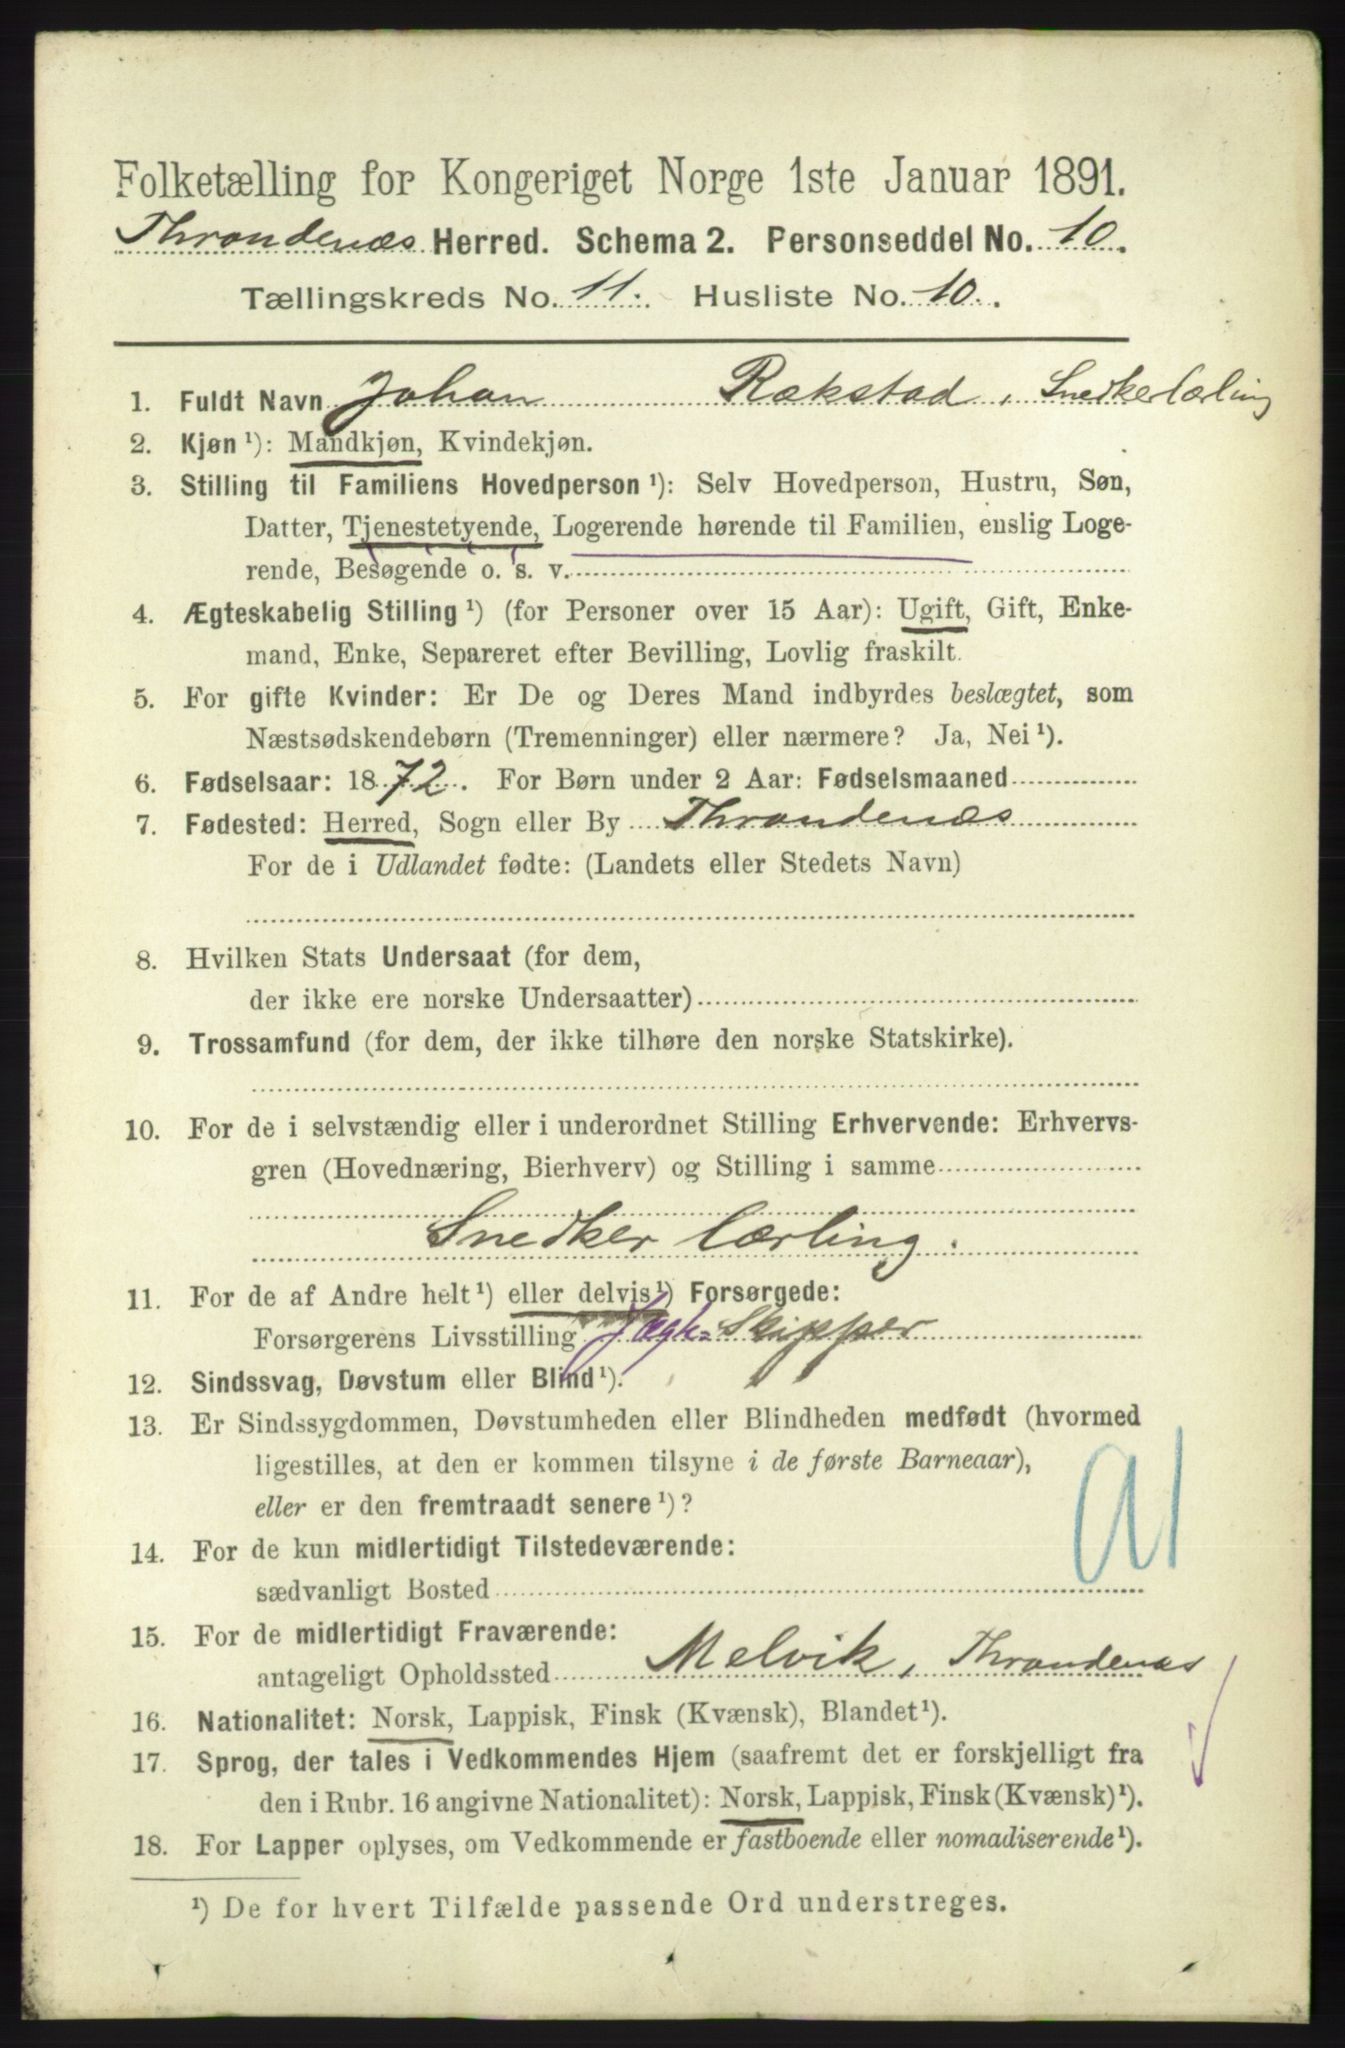 Folketælling for Kongeriget Norge 1ste Januar 1891.
Throndenæs Herred. Schema 2. Personseddel No. 10.
Tællingskreds No. 11. Husliste No. 10.
1. Fuldt Navn Johan Rækstad, Snedkerlærling
2. Kjøn ¹): Mandkjøn, Kvindekjøn.
3. Stilling til Familiens Hovedperson ¹): Selv Hovedperson, Hustru, Søn,
Datter, Tjenestetyende, Logerende hørende til Familien, enslig Loge-
rende, Besøgende o. s. v.
4. Ægteskabelig Stilling ¹) (for Personer over 15 Aar): Ugift, Gift, Enke-
mand, Enke, Separeret efter Bevilling, Lovlig fraskilt.
5. For gifte Kvinder: Er De og Deres Mand indbyrdes beslægtet, som
Næstsødskendebørn (Tremenninger) eller nærmere? Ja, Nei ¹).
6. Fødselsaar: 1872. For Børn under 2 Aar: Fødselsmaaned
7. Fødested: Herred, Sogn eller By Throndenæs
For de i Udlandet fødte: (Landets eller Stedets Navn)
8. Hvilken Stats Undersaat (for dem,
der ikke ere norske Undersaatter)
9. Trossamfund (for dem, der ikke tilhøre den norske Statskirke).
10. For de i selvstændig eller i underordnet Stilling Erhvervende: Erhvervs-
gren (Hovednæring, Bierhverv) og Stilling i samme
Snedker lærling.
11. For de af Andre helt ¹) eller delvis ¹) Forsørgede:
Forsørgerens Livsstilling Jægt-Skipper
12. Sindssvag, Døvstum eller Blind ¹).
13. Er Sindssygdommen, Døvstumheden eller Blindheden medfødt (hvormed
ligestilles, at den er kommen tilsyne i de første Barneaar),
eller er den fremtraadt senere ¹)?
14. For de kun midlertidigt Tilstedeværende:
sædvanligt Bosted
15. For de midlertidigt Fraværende:
antageligt Opholdssted Melvik, Throndenæs
16. Nationalitet: Norsk, Lappisk, Finsk (Kvænsk), Blandet ¹).
17. Sprog, der tales i Vedkommendes Hjem (saafremt det er forskjelligt fra
den i Rubr. 16 angivne Nationalitet): Norsk, Lappisk, Finsk (Kvænsk) ¹).
18. For Lapper oplyses, om Vedkommende er fastboende eller nomadiserende ¹).
¹) De for hvert Tilfælde passende Ord understreges.